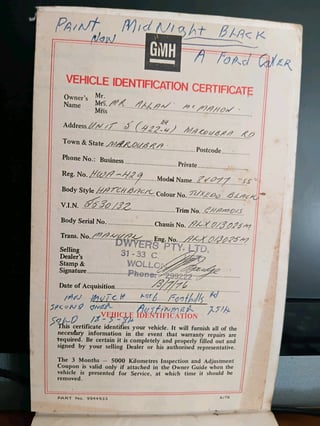 PAINT MIDNIGHT BLACK
NOW
A FORD OWNER
GMH
VEHICLE IDENTIFICATION CERTIFICATE
Owner's Name
Mr.
Mrs. MR ALLAN McMAHON
Miss
Address UNIT 5 (422-4) MAROUBRA RD
Town & State MAROUBRA Postcode
Phone No.: Business Private
Reg. No. HWA-429 Model Name "SS"
Body Style HATCHBACK Colour No. TUXEDO BLACK
V.I.N. Trim No. CHAMOIS
Body Serial No. Chassis No.
Trans. No. MANUAL Eng. No.
Selling Dealer's Stamp & Signature
DWYERS PTY. LTD.
31-33 C.
WOLLO
Phone:
Date of Acquisition 18/7/76
Foothills Rd
SECOND OWNER AUSTINMER 2514
VEHICLE IDENTIFICATION
SOLD
This certificate identifies your vehicle. It will furnish all of the
necessary information in the event that warranty repairs are
required. Be certain it is completely and properly filled out and
signed by your selling Dealer or his authorised representative.
The 3 Months — 5000 Kilometres Inspection and Adjustment
Coupon is valid only if attached in the Owner Guide when the
vehicle is presented for Service, at which time it should be
removed.
PART No. 9944933 6/76